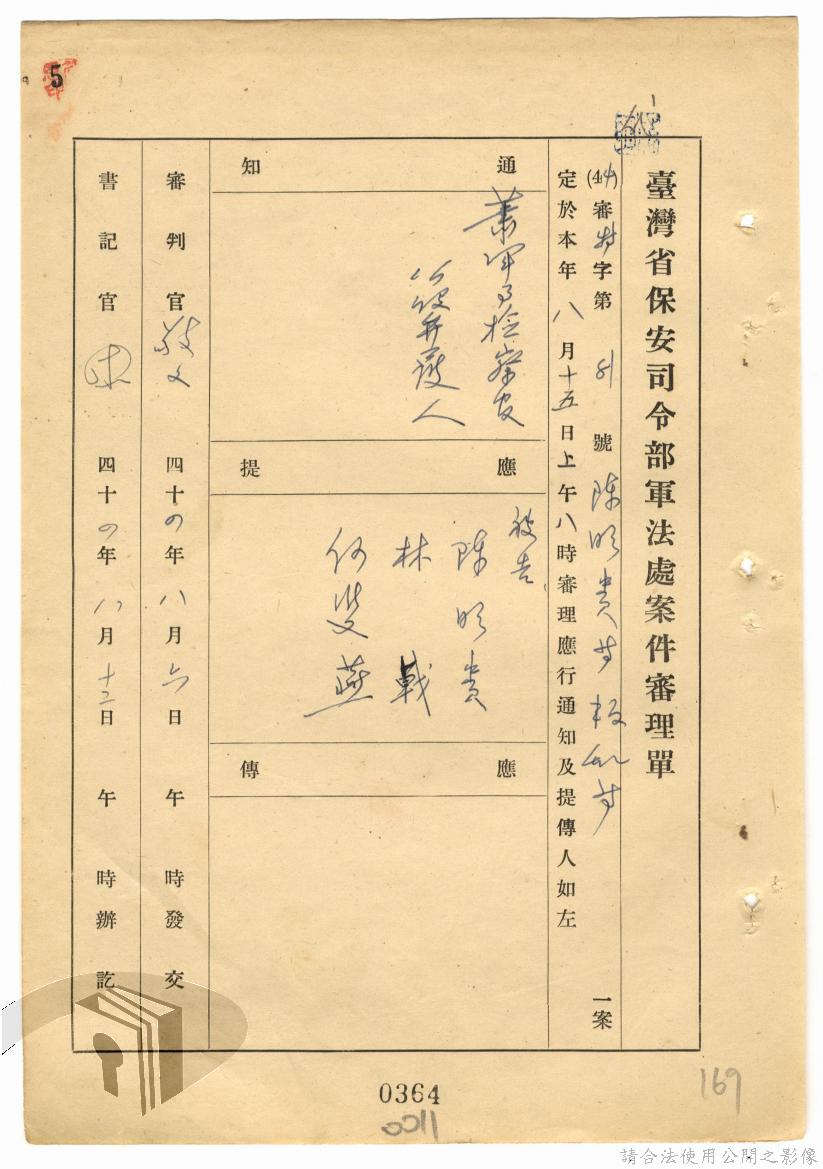 5
臺灣省保安司令部軍法處案件審理單
(44)審特字第81號陳明貴等叛亂等一案
定於本年八月十五日上午八時審理應行通知及提傳人如左
通知
葉軍事檢察官
公設辯護人
應提
被告
陳明貴
林戟
何雙燕
應傳
審判官 四十四年八月六日午時發交
書記官 四十四年八月十三日午時辦訖
0364
0011
169
請合法使用公開之影像